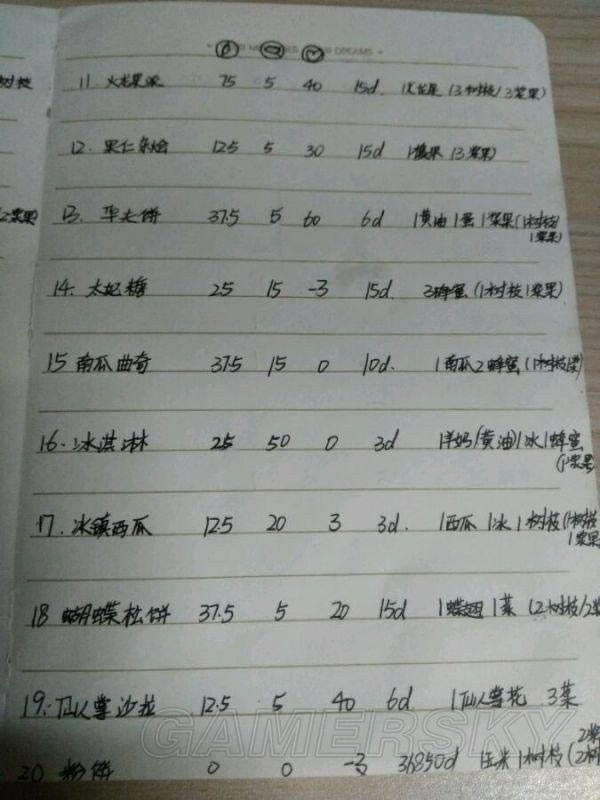 DREAMS
树枝 11. 火龙果派 75 5 40 15d 1火龙果 (3树枝/3浆果)
12. 果仁杂烩 12.5 5 30 15d (3浆果)
2浆果) 13. 华夫饼 37.5 5 60 6d 1黄油 1蛋 1浆果(1树枝/
1浆果)
14. 太妃糖 25 15 -3 15d. 3蜂蜜 (1树枝 1浆果)
15 南瓜曲奇 37.5 15 0 10d. 1南瓜 2蜂蜜 (1树枝
16. 冰淇淋 25 50 0 3d 1羊奶(黄油) 1冰 1蜂蜜
(1浆果)
17. 冰镇西瓜 12.5 20 3 3d. 1西瓜 1冰 1树枝(1树枝
1浆果
18 蝴蝶松饼 37.5 5 20 15d 1蝶翅 1菜 (2树枝/2浆
19. 仙人掌沙拉 12.5 5 40 6d 1仙人掌花 3菜
20 粉饼 0 0 -3 36850d 玉米 1树枝
GAMERSKY